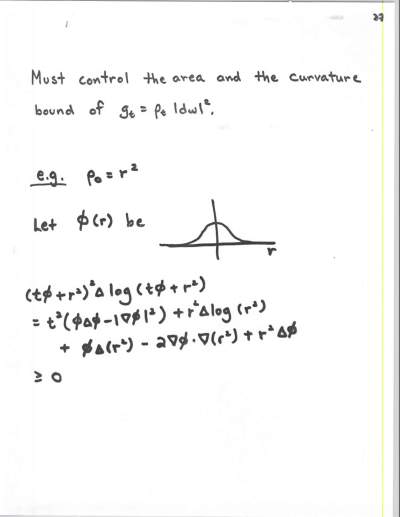 27
Must control the area and the curvature
bound of g_t = ρ_t |dw|².
e.g. ρ₀ = r²
Let φ(r) be
r
(tφ + r²)² Δ log (tφ + r²)
= t²(φΔφ - |∇φ|²) + r²Δlog (r²)
+ φΔ(r²) - 2∇φ·∇(r²) + r²Δφ
≥ 0